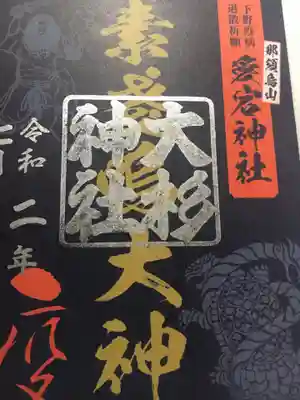 下野疫病
退散祈願
那須烏山
愛宕神社
素盞嗚大神
大杉
神社
令和二年